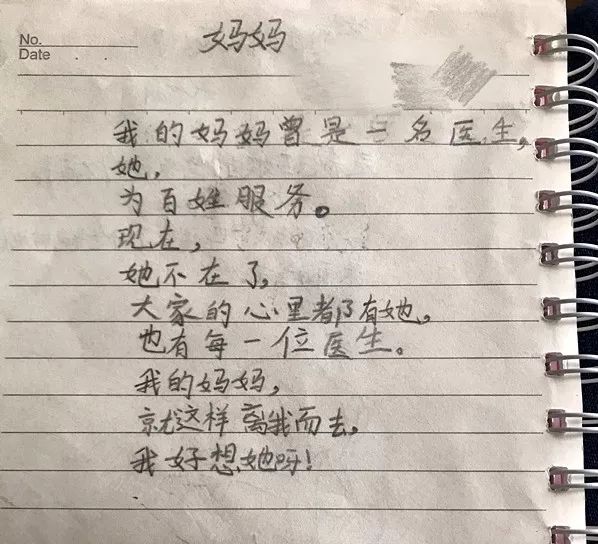 妈妈
No.
Date
我的妈妈曾是一名医生,
她,
为百姓服务。
现在,
她不在了,
大家的心里都有她,
也有每一位医生。
我的妈妈,
就这样离我而去,
我好想她呀!